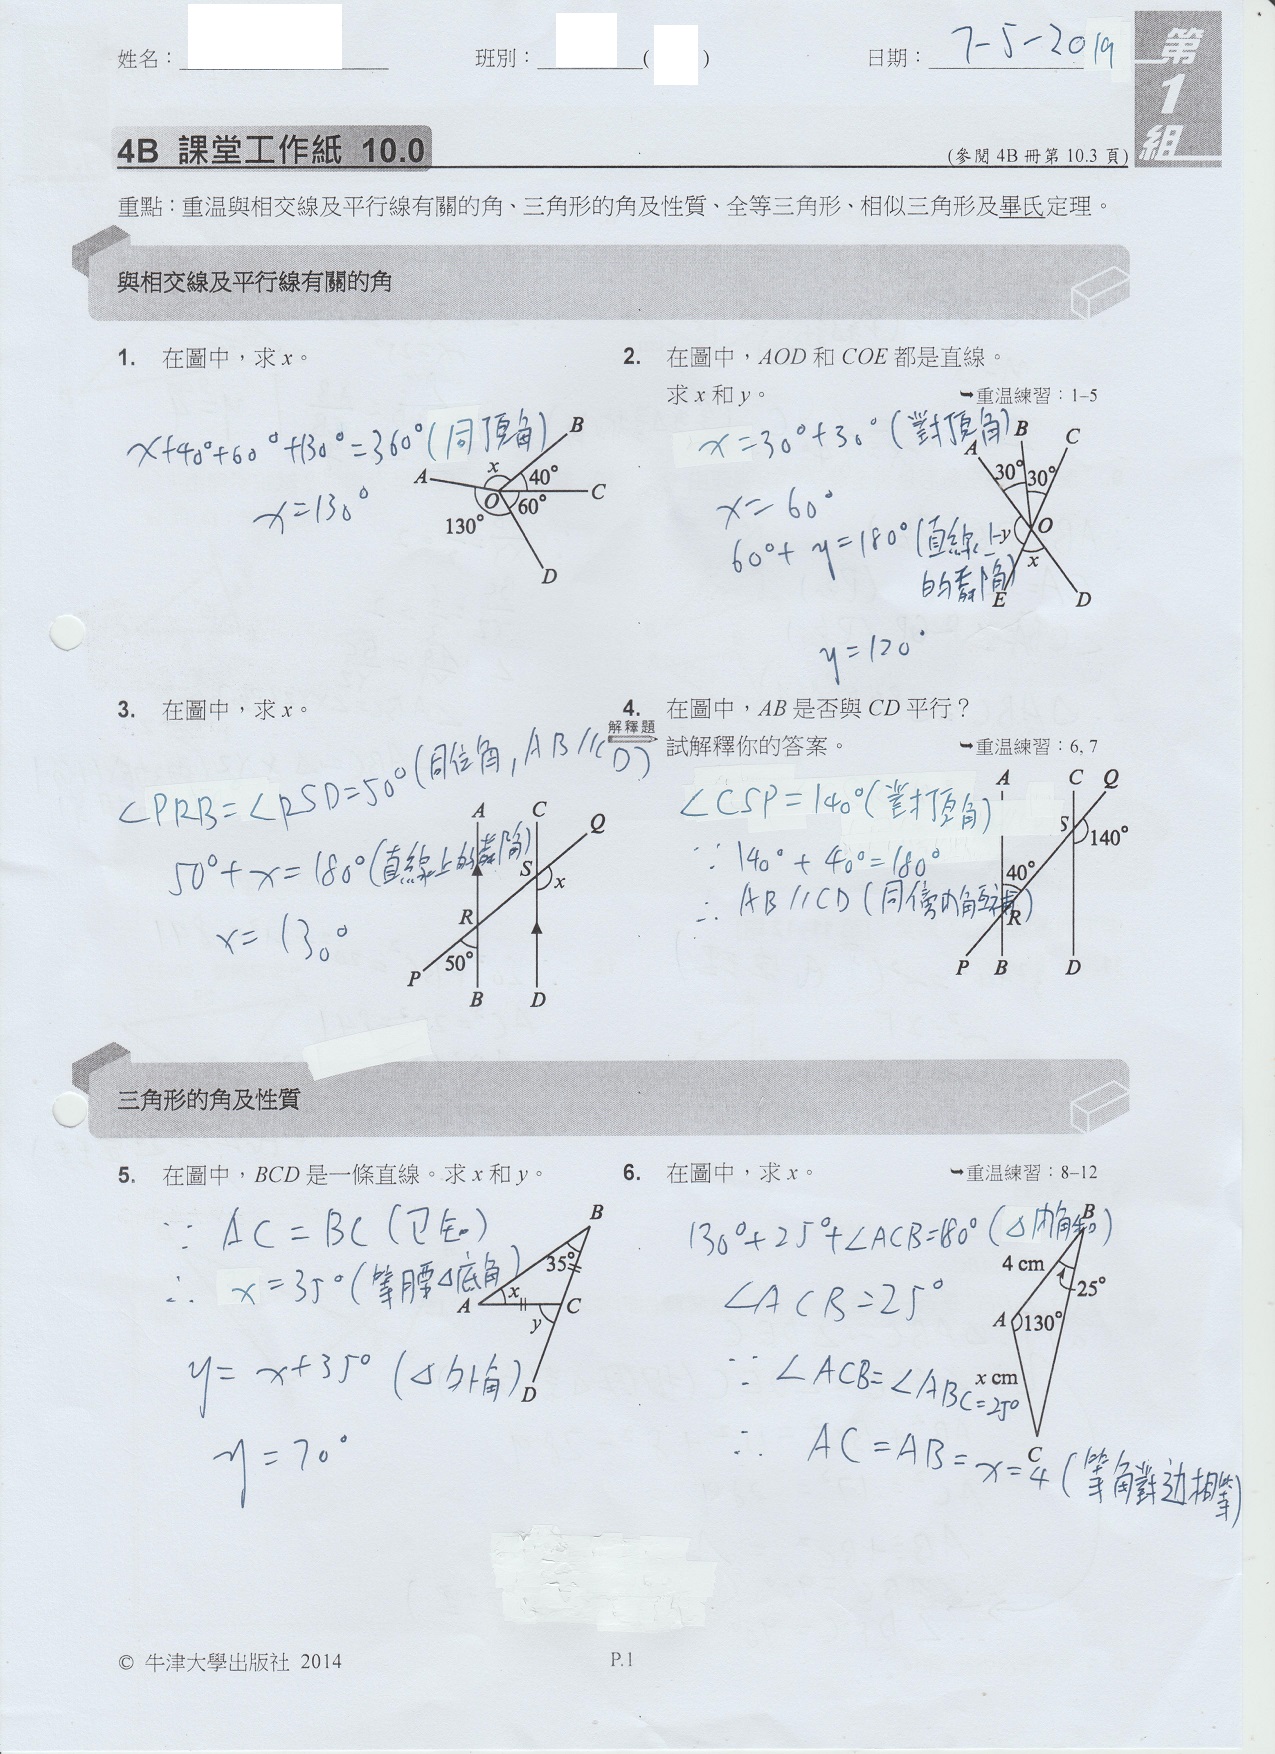 姓名：
班別：
(
)
日期：
7-5-2019
第
1
組
4B 課堂工作紙 10.0
(參閱 4B 冊第 10.3 頁)
重點：重温與相交線及平行線有關的角、三角形的角及性質、全等三角形、相似三角形及畢氏定理。
與相交線及平行線有關的角
1. 在圖中，求 x。
x+40°+60°+130°=360° (同頂角)
x=130°
A
B
C
D
O
x
40°
60°
130°
2. 在圖中，AOD 和 COE 都是直線。
求 x 和 y。
➥重温練習：1–5
x=30°+30° (對頂角)
x=60°
60°+y=180° (直線上
的鄰角)
y=120°
A
B
C
30°
30°
O
y
x
E
D
3. 在圖中，求 x。
∠PRB=∠RSD=50° (同位角, AB//CD)
50°+x=180° (直線上的鄰角)
x=130°
A
C
Q
S
x
R
50°
P
B
D
4. 在圖中，AB 是否與 CD 平行？
解釋題
試解釋你的答案。
➥重温練習：6, 7
∠CSP=140° (對頂角)
∵ 140°+40°=180°
∴ AB//CD (同傍內角互補)
A
C
Q
S
140°
40°
R
P
B
D
三角形的角及性質
5. 在圖中，BCD 是一條直線。求 x 和 y。
∵ AC=BC (已知)
∴ x=35° (等腰△底角)
y=x+35° (△外角)
y=70°
B
35°
x
A
C
y
D
6. 在圖中，求 x。
➥重温練習：8–12
130°+25°+∠ACB=180° (△內角和)
∠ACB=25°
∵ ∠ACB=∠ABC=25°
∴ AC=AB=x=4 (等角對边相等)
B
4 cm
25°
A
130°
x cm
C
© 牛津大學出版社 2014
P.1